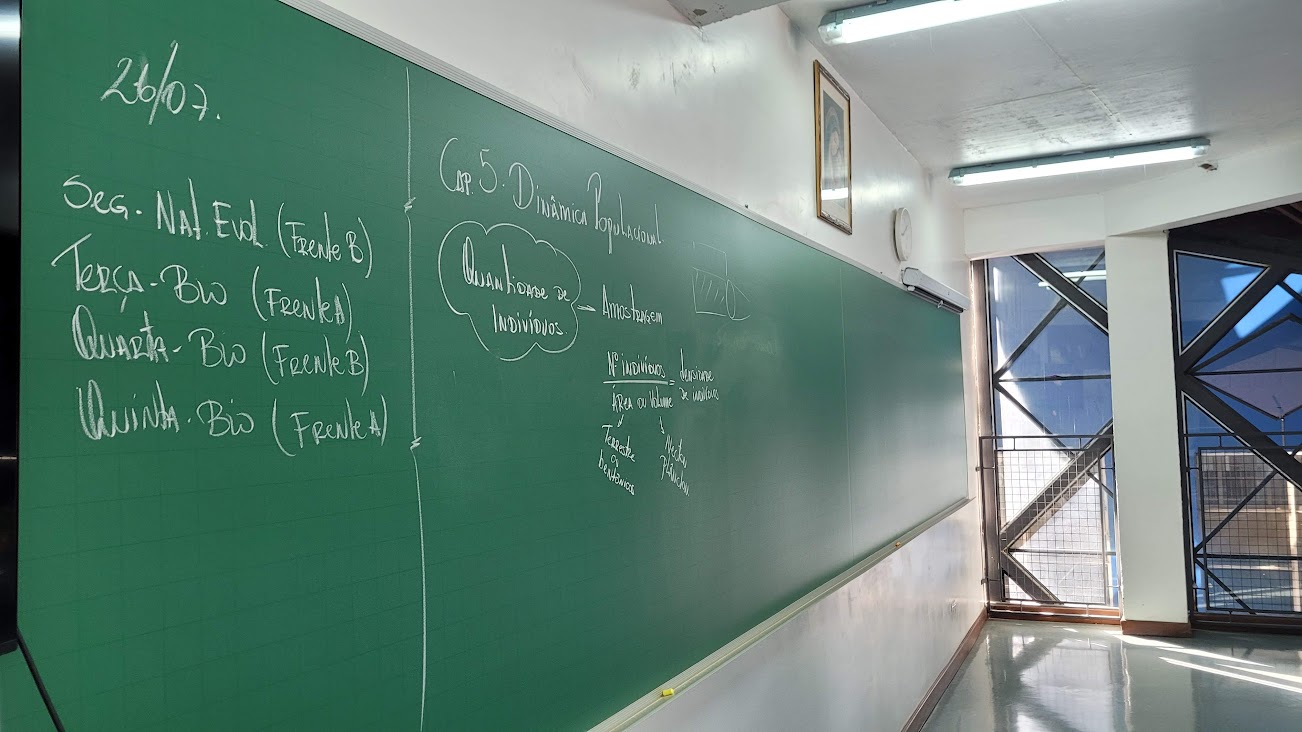 26/07.
Seg. Nat Evol. (Frente B)
Terça - Bio (Frente A)
Quarta - Bio (Frente B)
Quinta - Bio (Frente A)
Cap. 5. Dinâmica Populacional
Quantidade de
Indivíduos → Amostragem
Nº indivíduos = densidade
Área ou Volume de indivíduos
Terrestre Necton
ou Plâncton
bentônicos